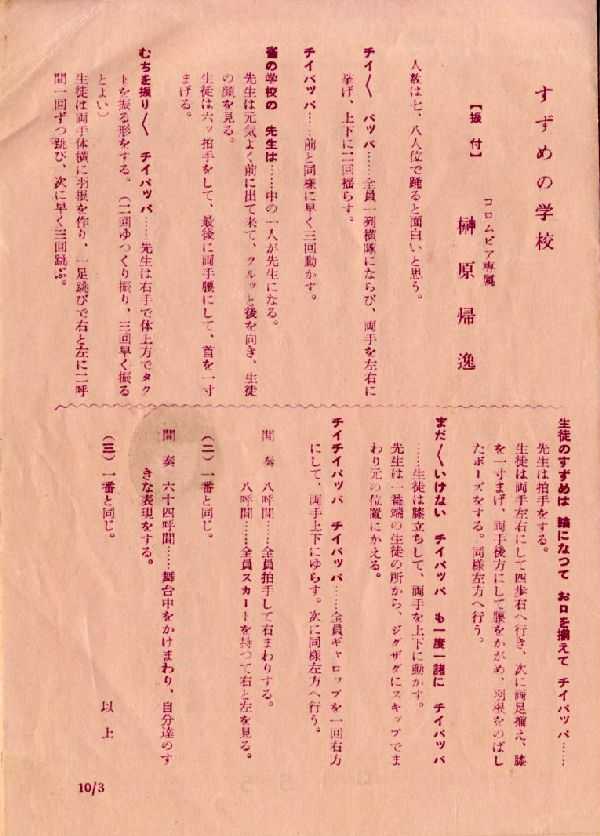 すずめの学校
コロムビア専属
【振付】　榊原帰逸
人数は七、八人位で踊ると面白いと思う。
チイ〱　パッパ……全員一列横隊にならび、両手を左右に
挙げ、上下に二回揺らす。
チイパッパ……前と同様に早く三回動かす。
雀の学校の　先生は……中の一人が先生になる。
先生は元気よく前に出て来て、クルッと後を向き、生徒
の顔を見る。
生徒は六ッ拍手をして、最後に両手腰にして、首を一寸
まげる。
むちを振り〱　チイパッパ……先生は右手で体上方でタク
トを振る形をする。（二回ゆつくり振り、三回早く振る
とよい）
生徒は両手体横に羽根を作り、一足跳びで右と左に二呼
間一回ずつ跳び、次に早く三回跳ぶ。
生徒のすずめは　輪になつて　お口を揃えて　チイパッパ……
先生は拍手をする。
生徒は両手左右にして四歩右へ行き、次に両足揃え、膝
を一寸まげ、両手後方にして腰をかがめ、羽根をのばし
たポーズをする。同様左方へ行う。
まだ〱いけない　チイパッパ　も一度一諸に　チイパッパ
……生徒は膝立ちして、両手を上下に動かす。
先生は一番端の生徒の所から、ジグザグにスキップでま
わり元の位置にかえる。
チイチイパッパ　チイパッパ……全員ギャロップを一回右方
にして、両手上下にゆらす。次に同様左方へ行う。
間　奏　八呼間……全員拍手して右まわりする。
八呼間……全員スカートを持つて右と左を見る。
（二）一番と同じ。
間　奏　六十四呼間……舞台中をかけまわり、自分達のす
きな表現をする。
（三）一番と同じ。
以上
10/3